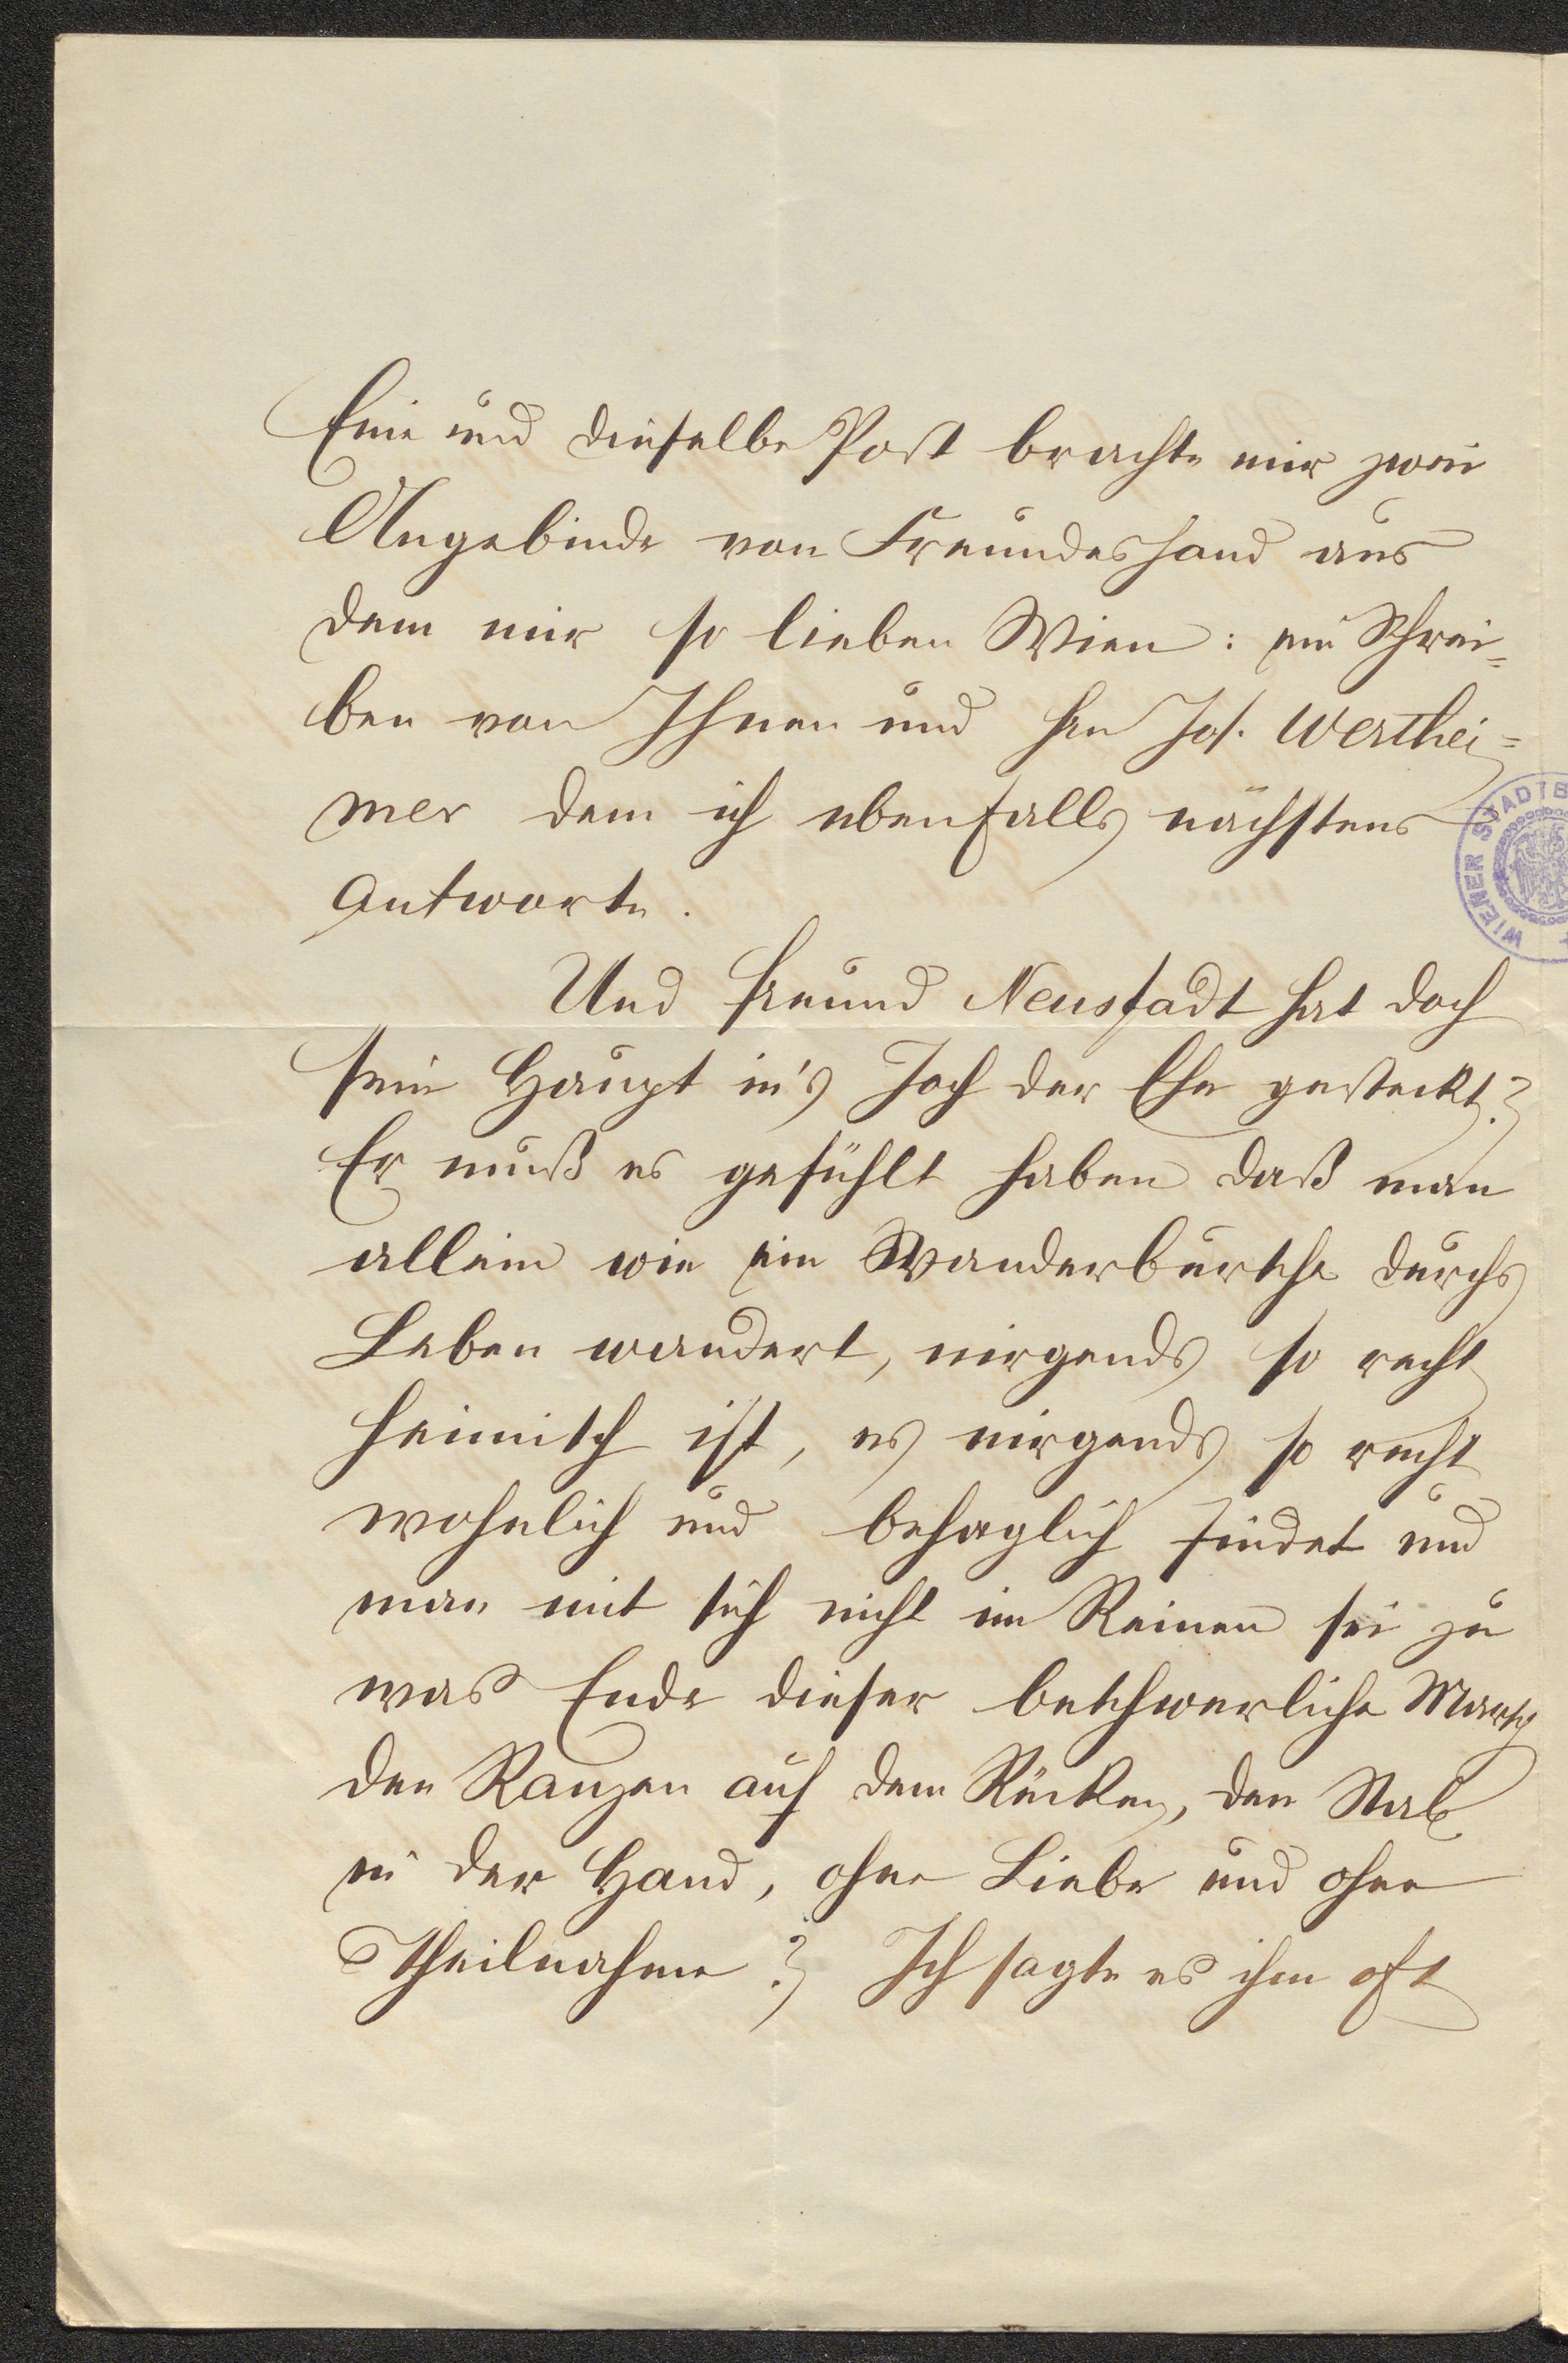 Eine und dieselbe Post brachte mir zwei
Angebinde von Freundeshand aus
dem mir so lieben Wien: ein Schrei=
ben von Ihnen und Hrn Jos. Werthei=
mer dem ich ebenfalls nächstens
antworte.
Und Freund Neustadt hat doch
sein Haupt in's Joch der Ehe gesteckt?
Er muß es gefühlt haben daß man
allein wie ein Wanderbursche durchs
Leben wandert, nirgends so recht
heimisch ist, es nirgends so recht
wohnlich und behaglich findet und
man mit sich nicht im Reinen sei zu
was Ende dieser beschwerliche Marsch
den Ranzen auf dem Rücken, den Stab
in der Hand, ohne Liebe und ohne
Theilnahme? Ich sagte es ihm oft
WIENER STADTB